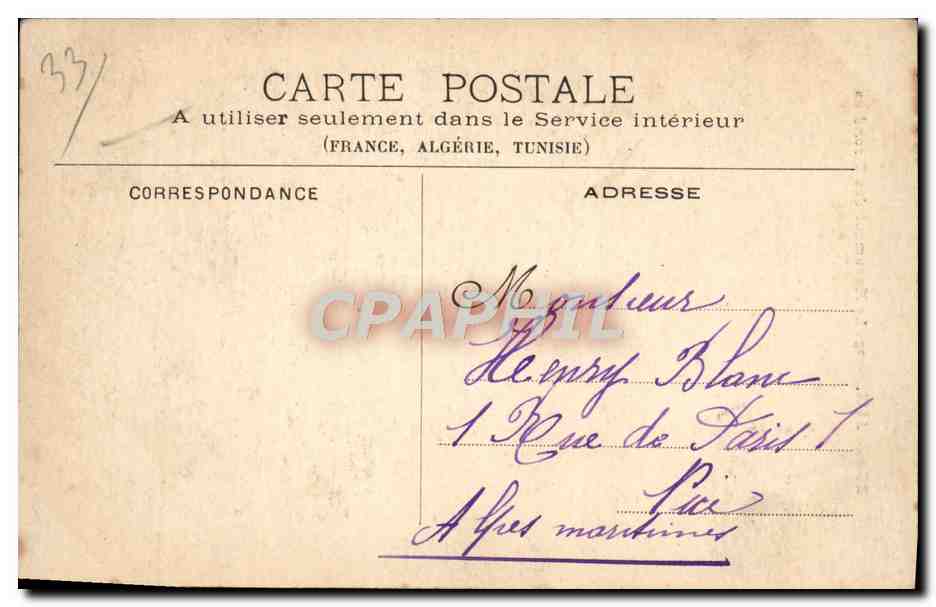 33/
CARTE POSTALE
A utiliser seulement dans le Service intérieur
(FRANCE, ALGÉRIE, TUNISIE)
CORRESPONDANCE
ADRESSE
Monsieur
CPAPHIL
Henry Blanc
1 Rue de Paris 1
Nice
Alpes maritimes